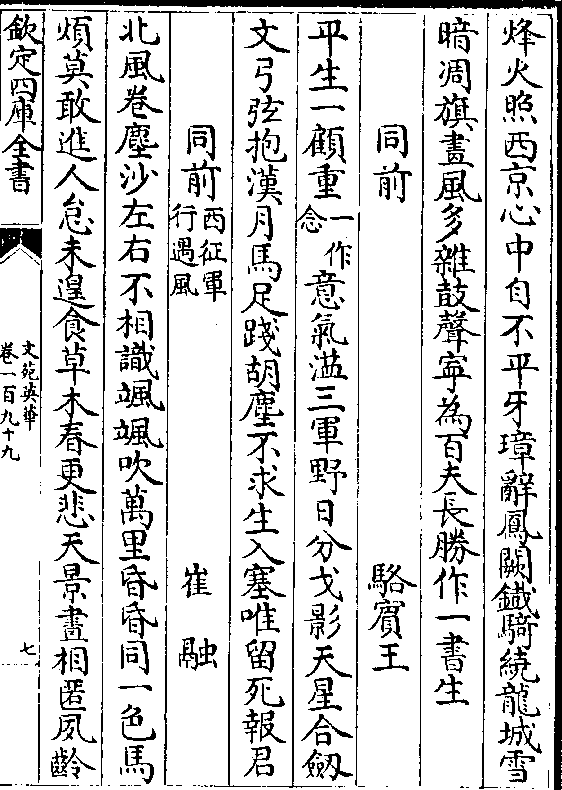 烽火照西京心中自不平牙璋辭鳳闕鐵騎繞龍城雪
暗凋旗畫風多雜鼓聲寜為百夫長勝作一書生
同前　駱賓王
平生一顧重一作念意氣溢三軍野日分戈影天星合劔
文弓弦抱漢月馬足踐胡塵不求生入塞唯留死報君
同前西征軍行遇風　崔融
北風卷塵沙左右不相識颯颯吹萬里昏昏同一色馬
煩莫敢進人怠未遑食草木春更悲天景晝相匿夙齡
欽定四庫全書
文苑英華
卷一百九十九
七